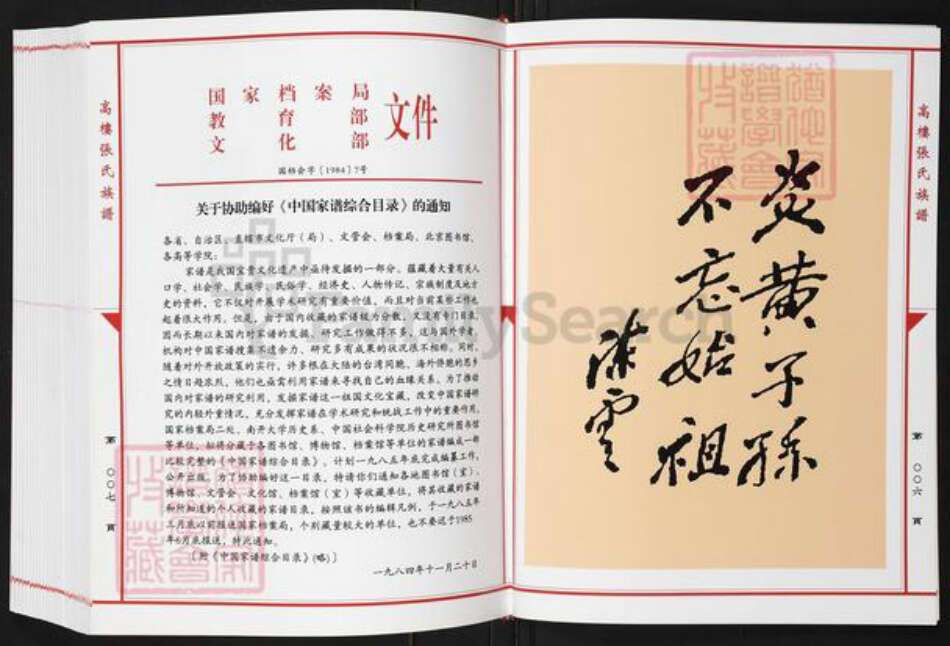 高樓張氏族譜
第 〇〇六 頁
炎黄子孫
不忘始祖
陈云
国家档案局
教育部
文化部
文件
国档会字〔1984〕7号
关于协助编好《中国家谱综合目录》的通知
各省、自治区、直辖市文化厅（局）、文管会、档案局，北京图书馆，
各高等学院：
家谱是我国宝贵文化遗产中亟待发掘的一部分。蕴藏着大量有关人
口学、社会学、民族学、民俗学、经济史、人物传记、宗族制度及地方
史的资料，它不仅对开展学术研究有重要价值，而且对当前某些工作也
起着很大作用。但是，由于国内收藏的家谱极为分散，又没有专门目录，
因而长期以来国内对家谱的发掘、研究工作做得不多，这与国外学者、
机构对中国家谱搜集不遗余力、研究多有成果的状况很不相称。同时，
随着对外开放政策的实行，许多根在大陆的台湾同胞、海外侨胞的思乡
之情日趋浓烈，他们也亟需利用家谱来寻找自己的血缘关系。为了推动
国内对家谱的研究利用，发掘家谱这一祖国文化宝藏，改变中国家谱研
究的内轻外重情况，充分发挥家谱在学术研究和统战工作中的重要作用，
国家档案局二处、南开大学历史系、中国社会科学院历史研究所图书馆
等单位，拟将分藏于各图书馆、博物馆、档案馆等单位的家谱编成一部
比较完整的《中国家谱综合目录》，计划一九八五年底完成编纂工作，
公开出版。为了协助编好这一目录，特请你们通知各地图书馆（室）、
博物馆、文管会、文化馆、档案馆（室）等收藏单位，将其收藏的家谱
和所知道的个人收藏的家谱目录，按照该书的编辑凡例，于一九八五年
三月底以前报送国家档案局，个别藏量较大的单位，也不要迟于1985
年6月底报送，特此通知。
〔附《中国家谱综合目录》(略)〕
一九八四年十一月二十日
高樓張氏族譜
第 〇〇七 頁
FamilySearch